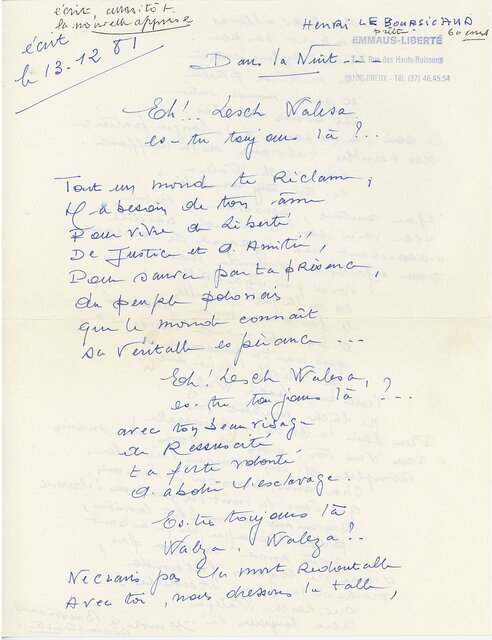 écrit aussitôt
la nouvelle apprise
écrit
le 13-12 81
HENRI LE BOURSICAUD
prêtre 60 ans
EMMAUS-LIBERTÉ
7-9, Rue des Hauts-Buissons
28100 DREUX - Tél. (37) 46.45.54
Dans la Nuit ----
Eh!.. Lesch Walesa
es-tu toujours là ?..
Tout un monde te Réclame,
Il a besoin de ton âme
Pour vivre de Liberté
De Justice et d'Amitié,
Pour sauver par ta présence,
du peuple polonais
que le monde connaît
sa Véritable espérance ---
Eh! Lesch Walesa,
es-tu toujours là ?---
avec ton beau visage
de Ressuscité
ta forte volonté
d'abolir l'esclavage.
Es-tu toujours là
Waleza, Waleza ?..
Ne crains pas la mort Redoutable
Avec toi, nous dressons la table,